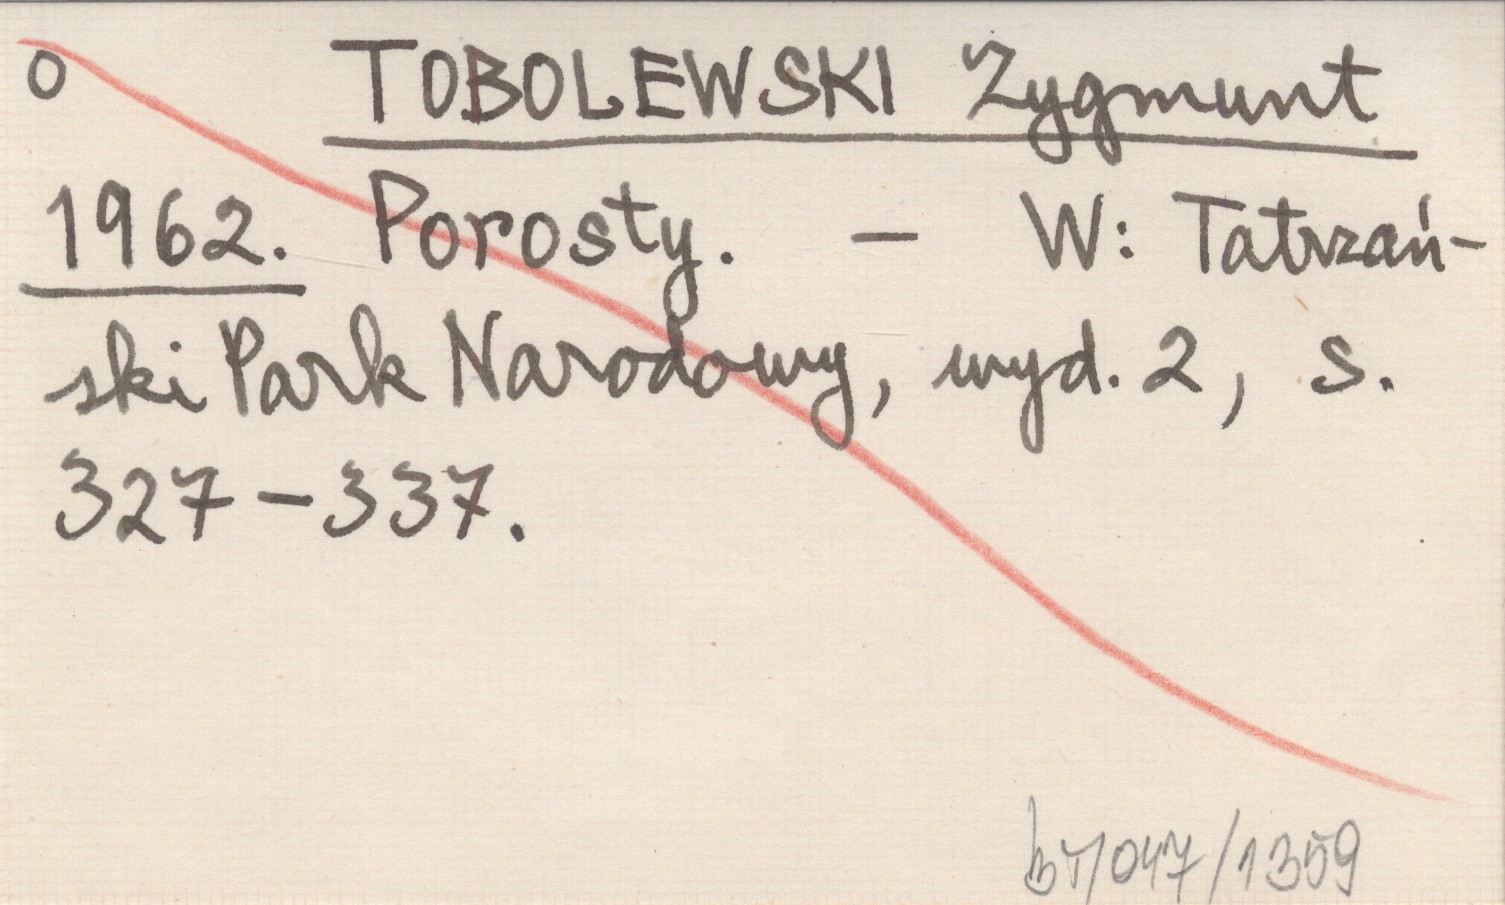 o TOBOLEWSKI Zygmunt
1962. Porosty. - W: Tatrzań-
ski Park Narodowy, wyd. 2, s.
327-337.
bT/047/1359